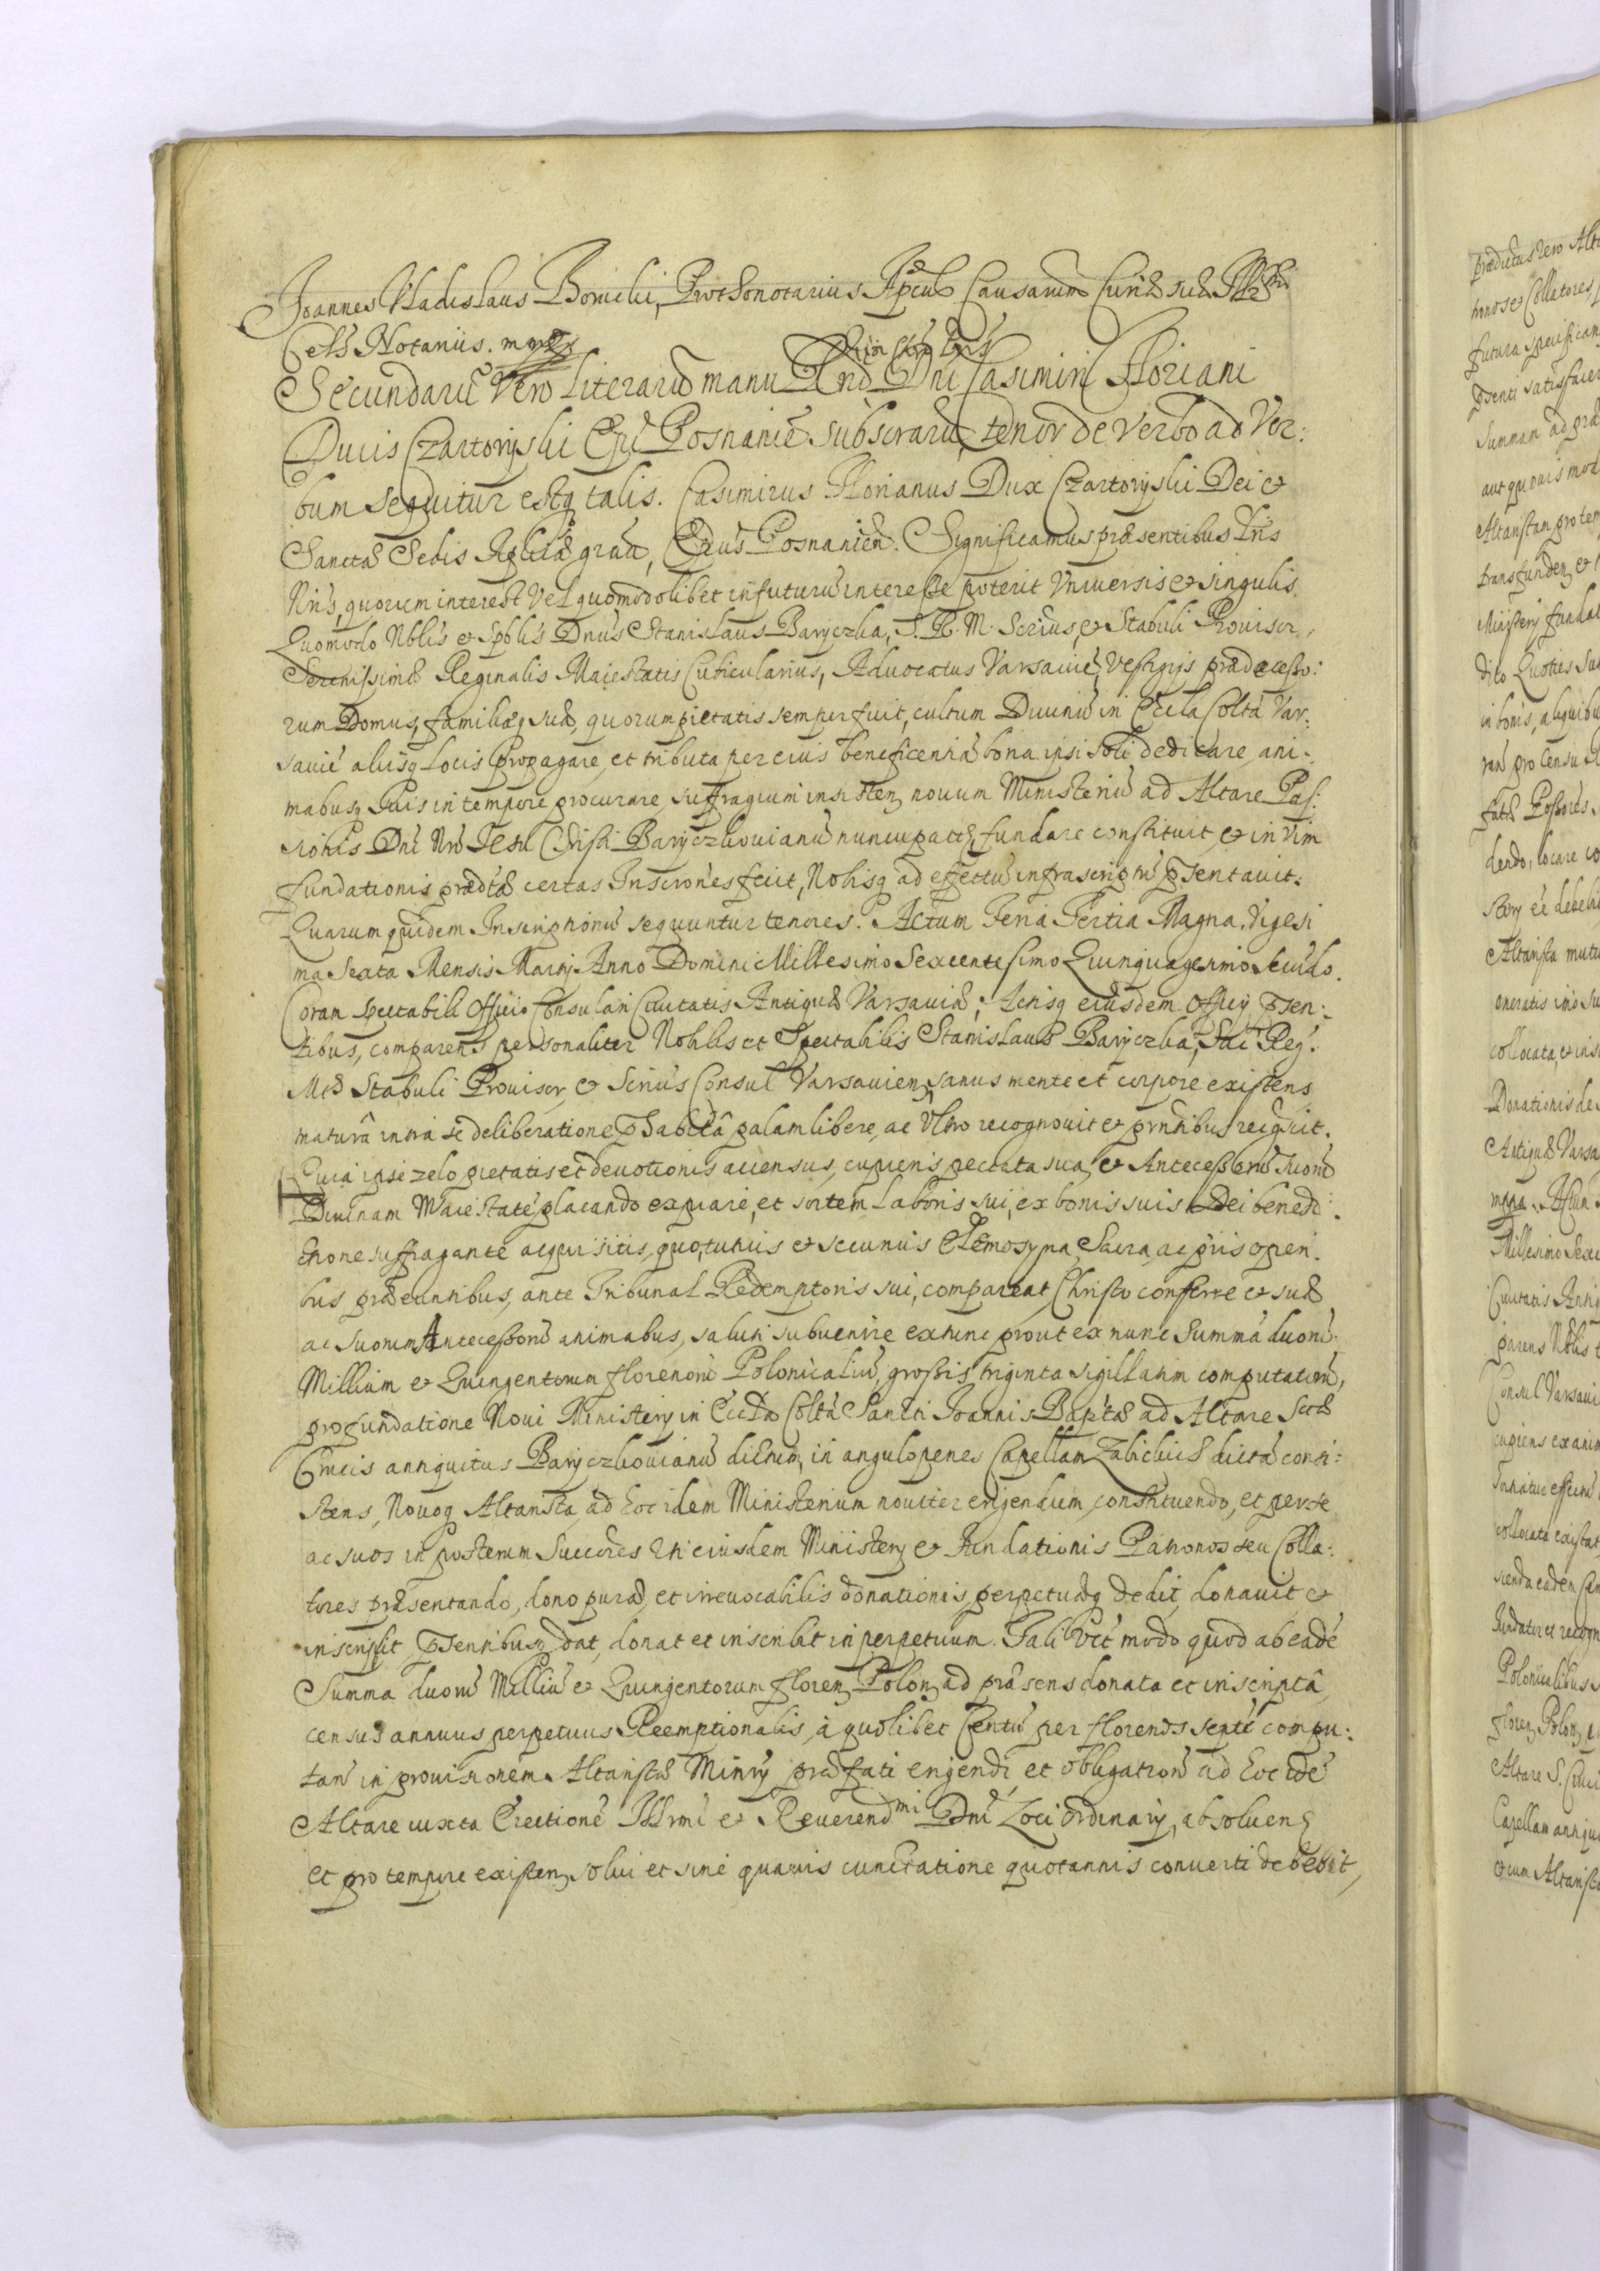 Joannes Vladislaus Boniecki, Prothonotarius Aplicus Causarum Curiæ suæ Illrmæ
Cels Notarius. mp
Secundaru Vero Literaru manu Rnd Dni Casimiri Floriani
Principis Loris
Ducis Czartoryski Epi Posnanien subscraru, tenor de verbo ad Ver:
bum sequitur estq talis. Casimirus Florianus Dux Czartoryski Dei et
Sanctæ Sedis Aplicæ gratia, Epus Posnanien. Significamus præsentibus Lris
Nris, quorum interest vel quomodolibet in futuru interesse poterit Universis et singulis.
Quomodo Nblis et Spblis Dnus Stanislaus Baryczka, S. R. M. Scrius, et Stabuli Provisor,
Serenissimæ Reginalis Maiestatis Cubicularius, Advocatus Varsavien, vestigijs prædecesso:
rum Domus, familiæq suæ, quorum pietatis semper fuit, cultum Divinu in Eccla Colta Var:
savien alijsq Locis propagare, et tributa per eius beneficentia bona ipsi soli dedicare, ani:
mabusq Suis in tempore procurare suffragium insisten novum Ministeriu ad Altare Pas:
sionis Dni Nri Jesu Christi Baryczkovianu nuncupatu, fundare constituit, et in vim
fundationis prædtæ certas Inscrones fecit, Nobisq ad effectu infrascriptu psentavit.
Quarum quidem Inscriptionu sequuntur tenores. Actum Feria Tertia Magna, Vigesi
ma Sexta Mensis Martij Anno Domini Millesimo Sexcentesimo Quinquagesimo Secundo.
Coram spectabili Officio Consulari Civitatis Antiquæ Varsaviæ, Actisq eiusdem Officij psen:
tibus, comparens personaliter Nobilis et Spectabilis Stanislaus Baryczka, Sac Reg:
Mtis Stabuli Provisor, et Scrius Consul Varsavien, sanus mente et corpore existens
matura intra se deliberatione phabita, palam libere, ac Ultro recognovit et prntibus recognit.
Quia ipse zelo pietatis et devotionis accensus, cupiens peccata sua, et Antecessoru suoru
Divinam Maiestate placando expiare, et sortem laboris sui, ex bonis suis Dei benedi:
ctione suffragante acquisitis, quo tutius et securius Elemosyna, Sacra, ac pijs operi:
bus præeuntibus, ante Tribunal Redemptoris sui, compareat, Christo conferre et suæ
ac suorum Antecessoru animabus, saluti subvenire extunc prout ex nunc Summa duoru
Millium et Quingentorum florenoru Polonicaliu, grossis triginta sigillatim computatoru,
pro fundatione Novi Ministerij in Eccla Colta Sancti Joannis Baptæ ad Altare Sctæ
Crucis antiquitus Baryczkovianu dictum, in angulo penes Capellam Zabickich dicta consi:
stens, Novoq Altarista, ad hoc idem Ministerium noviter erigendum, constituendo, et per se
ac suos in posterum Succores uti eiusdem Ministerij et Fundationis Patronos seu Colla:
tores præsentando, dono puræ, et irrevocabilis donationis, perpetuæq dedit, donavit et
inscripsit psentibusq dat, donat et inscribit in perpetuum. Tali vero modo quod ab eade
Summa duoru Milliu et Quingentorum floren Polon ad præsens donata et inscripta,
census annuus perpetuus Reemptionalis, a quolibet Centu per florenos septe compu:
tan in provisionem Altaristæ Minrij præfati erigendi, et obligationu ad hoc ide
Altare iuxta Erectione Illrmi et Reverendmi Dni Loci ordinarij, absolven
et pro tempore existen, solvi et sine quavis cunctatione quotannis converti debebit,